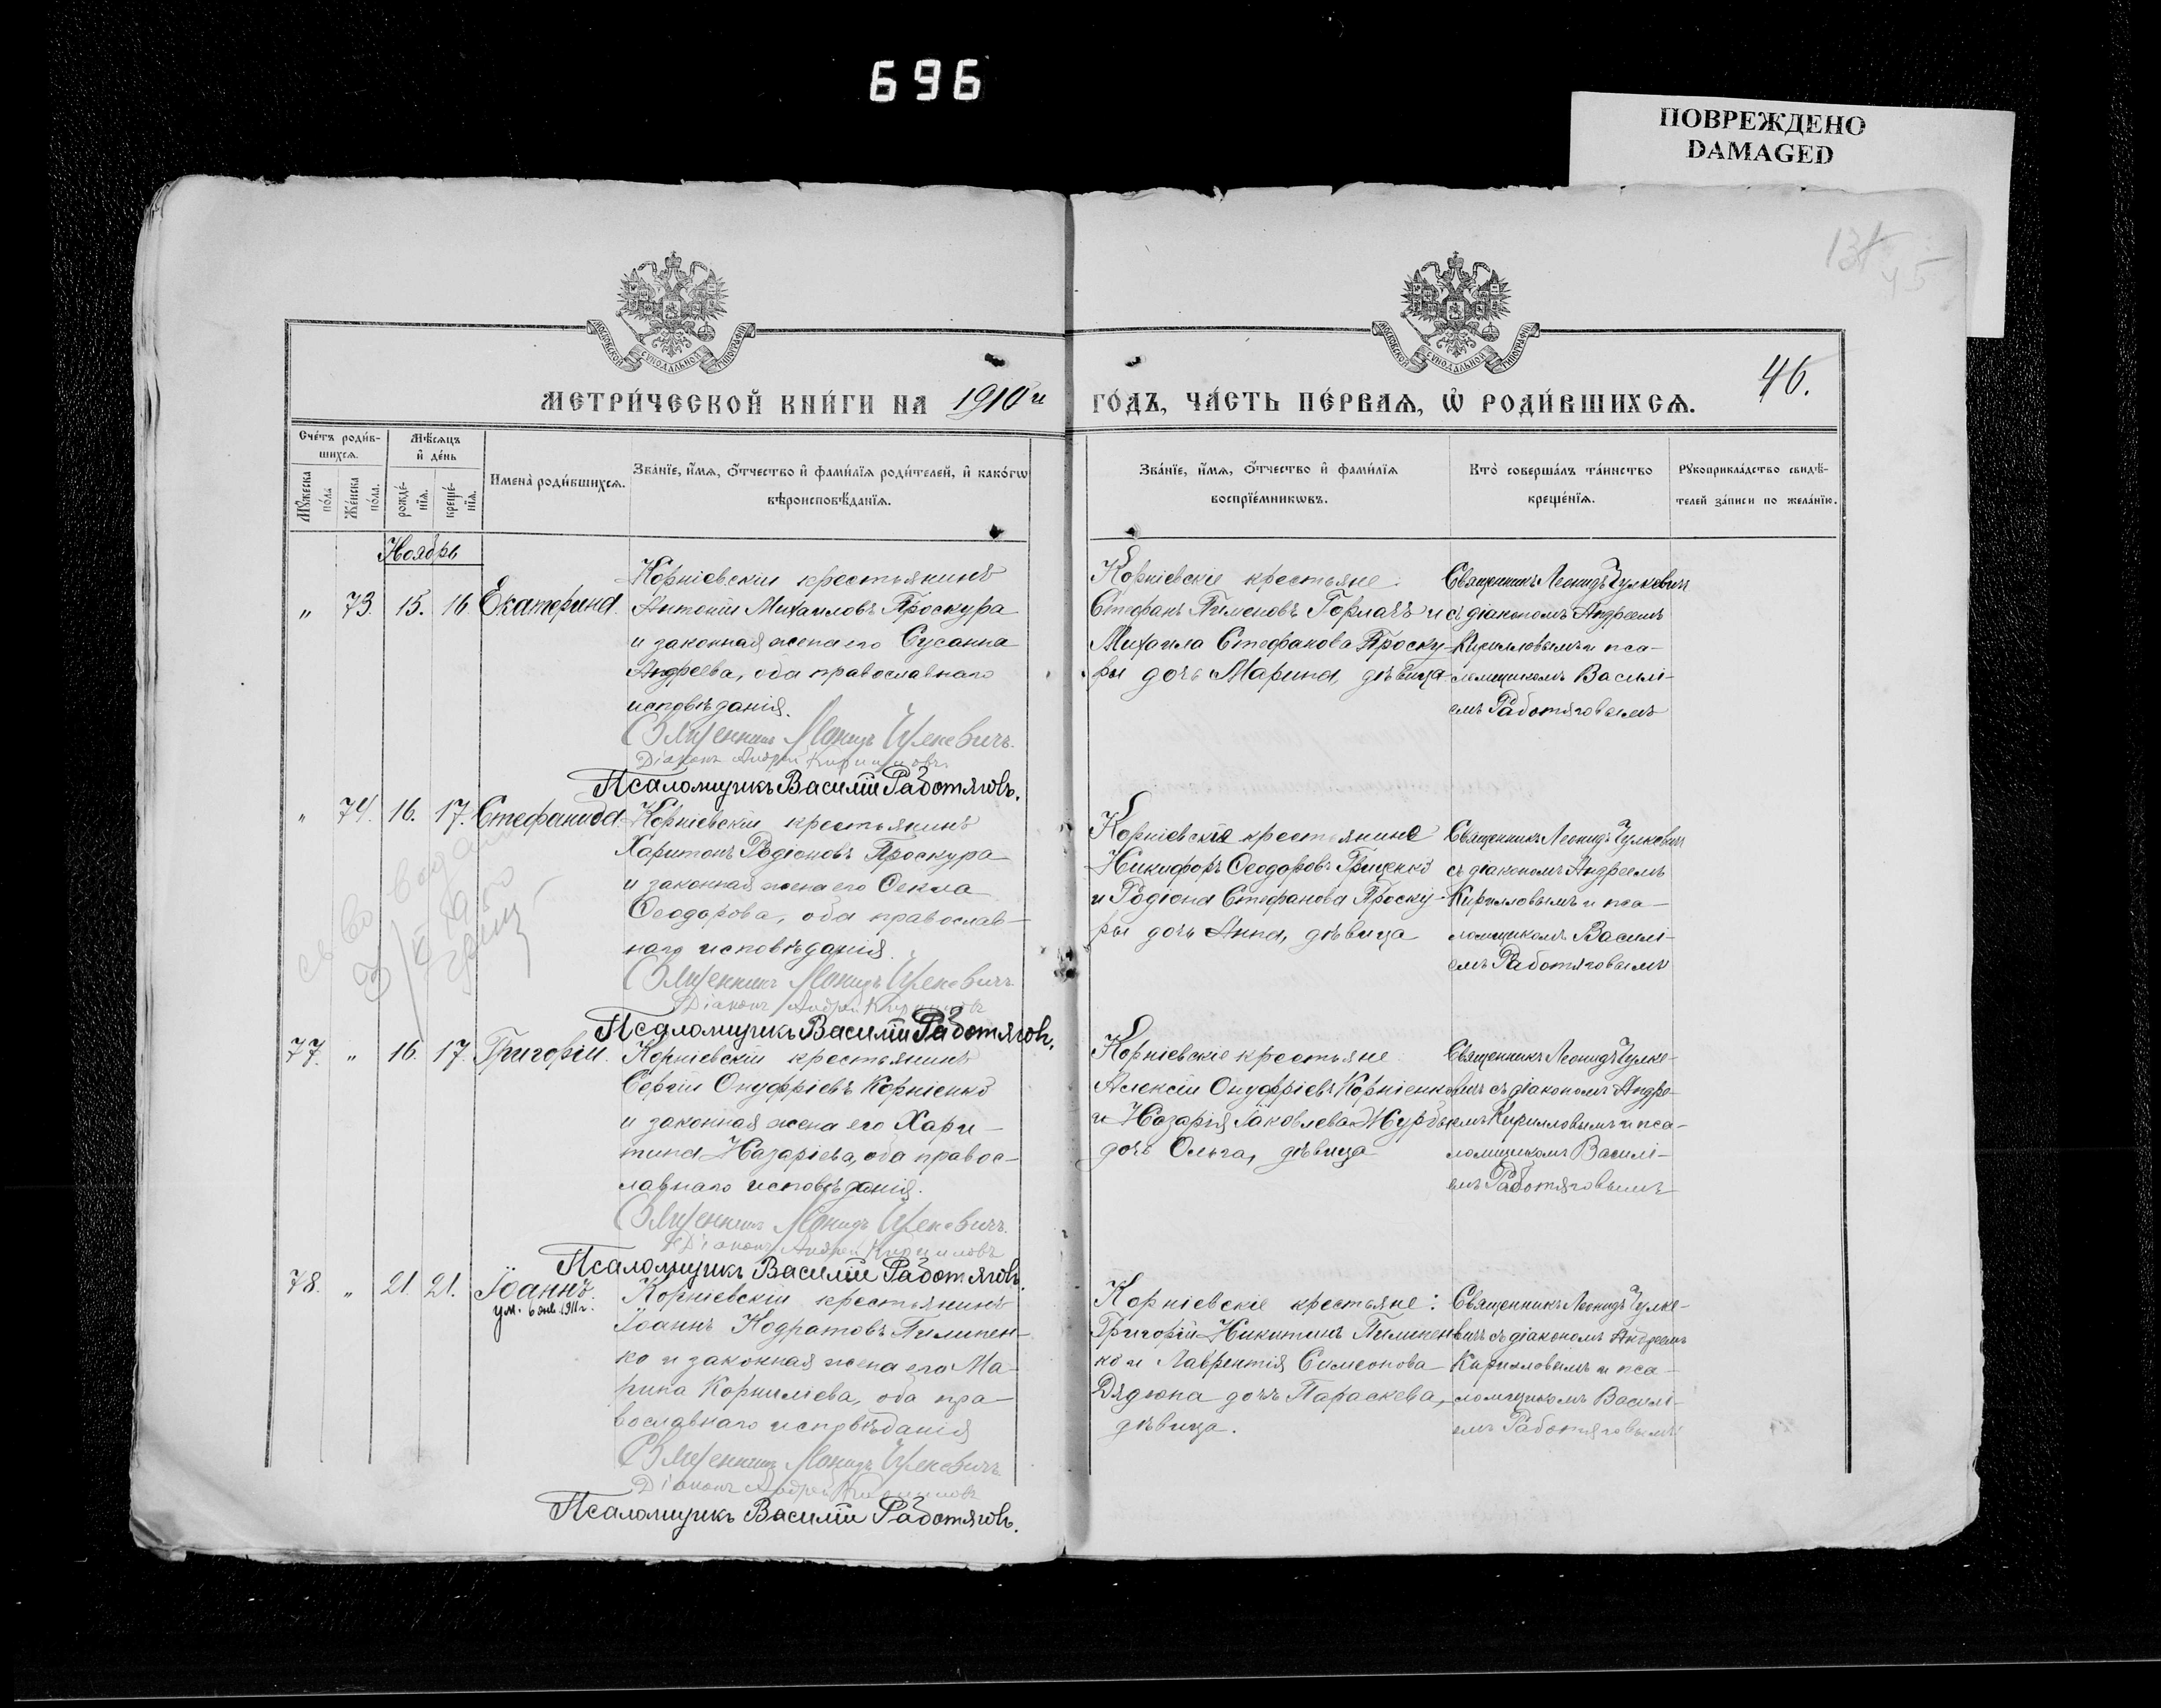 696
ПОВРЕЖДЕНО
DAMAGED
45
МОСКОВСКОЙ СУНОДАЛЬНОЙ ТИПОГРАФІИ
МОСКОВСКОЙ СУНОДАЛЬНОЙ ТИПОГРАФІИ
46.
МЕТРИ́ЧЕСКОЙ КНИ́ГИ НА 1910й ГО́ДЪ, ЧА́СТЬ ПЕ́РВАѦ, Ѡ РОДИ́ВШИХСѦ.
Сче́тъ роди́в-
шихсѧ.
Мѣ́сѧцъ
и҆ де́нь
Мꙋ́жеска по́ла
Же́нска по́ла.
рожде́-нїѧ.
креще́-нїѧ.
Имена̀ роди́вшихсѧ.
Зва́нїе, и҆́мѧ, ѻ҆́тчество и҆ фами́лїѧ роди́телей, и҆ како́гѡ
вѣроисповѣ́данїѧ.
Зва́нїе, и҆́мѧ, ѻ҆́тчество и҆ фами́лїѧ
воспрїе́мникѡвъ.
Кто̀ соверша́лъ та́инство
креще́нїѧ.
Рꙋкоприкла́дство свидѣ́-
телей за́писи по жела́нїю.
Ноябрь
„ 73. 15. 16. Екатерина.
Корніевскій крестьянинъ
Антоній Михаиловъ Проскура
и законная жена его Сусанна
Андреева, оба православнаго
исповѣданія.
Священникъ Леонидъ Чулкевичъ.
Діаконъ Андрей Кирилловъ
Псаломщикъ Василій Работяговъ.
Корніевскіе крестьяне:
Стефанъ Пименовъ Горлачъ и
Михаила Стефанова Проску-
ры дочь Марина, дѣвица
Священникъ Леонидъ Чулкевичъ
съ діакономъ Андреемъ
Кирилловымъ и пса-
ломщикомъ Василі-
емъ Работяговымъ
„ 74. 16. 17. Стефанида
Корніевскій крестьянинъ
Харитонъ Родіоновъ Проскура
и законная жена его Ѳекла
Ѳеодорова, оба православ-
наго исповѣданія.
Священникъ Леонидъ Чулкевичъ.
Діаконъ Андрей Кирилловъ
Псаломщикъ Василій Работяговъ.
Корніевскіе крестьяне
Никифоръ Ѳеодоровъ Гриценко
и Родіона Стефанова Проску-
ры дочь Анна, дѣвица
Священникъ Леонидъ Чулкевичъ
съ діакономъ Андреемъ
Кирилловымъ и пса-
ломщикомъ Василі-
емъ Работяговымъ
77. „ 16. 17. Григорій.
Корніевскій крестьянинъ
Сергій Онуфріевъ Корніенко
и законная жена его Хари-
тина Назаріева, оба правос-
лавнаго исповѣданія.
Священникъ Леонидъ Чулкевичъ.
Діаконъ Андрей Кирилловъ
Псаломщикъ Василій Работяговъ.
Корніевскіе крестьяне
Алексій Онуфріевъ Корніенко
и Назарія Іаковлева Журбы
дочь Ольга, дѣвица
Священникъ Леонидъ Чулке-
вичъ съ діакономъ Андре-
емъ Кирилловымъ и пса-
ломщикомъ Василі-
емъ Работяговымъ
78. „ 21. 21. Іоаннъ.
ум. 6 янв. 1911 г.
Корніевскій крестьянинъ
Іоаннъ Кодратовъ Пилипен-
ко и законная жена его Ма-
рина Корниліева, оба пра-
вославнаго исповѣданія
Священникъ Леонидъ Чулкевичъ.
Діаконъ Андрей Кирилловъ
Псаломщикъ Василій Работяговъ.
Корніевскіе крестьяне:
Григорій Никитинъ Пилипен
ко и Лаврентія Симеонова
Дядюна дочь Параскева,
дѣвица.
Священникъ Леонидъ Чулке-
вичъ съ діакономъ Андреемъ
Кирилловымъ и пса-
ломщикомъ Василі-
емъ Работяговымъ